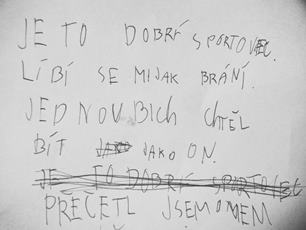 JE TO DOBRÍ SPORTOVEC.
LÍBÍ SE MI JAK BRÁNÍ.
JEDNOU BICH CHTĚL
BÍT JAKO ON.
JE TO DOBRÍ SPORTOVEC
PŘEČETL JSEM O NEM